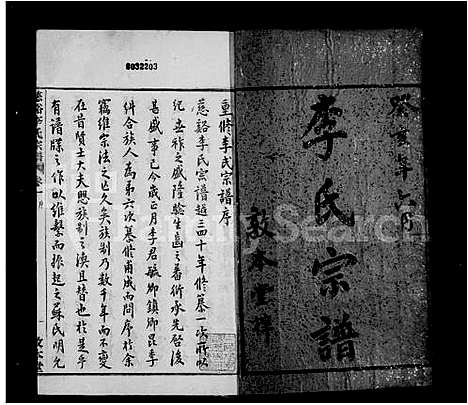 癸亥年六月
李氏宗譜
敦本堂梓
0032203
重修李氏宗譜序
慈谿李氏宗譜越三四十年修纂一次所以
紀世祚之盛隆驗生齒之蕃衍承先啓後
甚盛事已今歲正月李君毓卿鎮卿昆季
糾合族人為第六次纂修甫成而問序於余
竊維宗法之亡久矣族制乃數千年而不變
在昔賢士大夫思族制之渙且替也於是乎
有譜牒之作以維繫而振起之蘇氏明允
FamilySearch